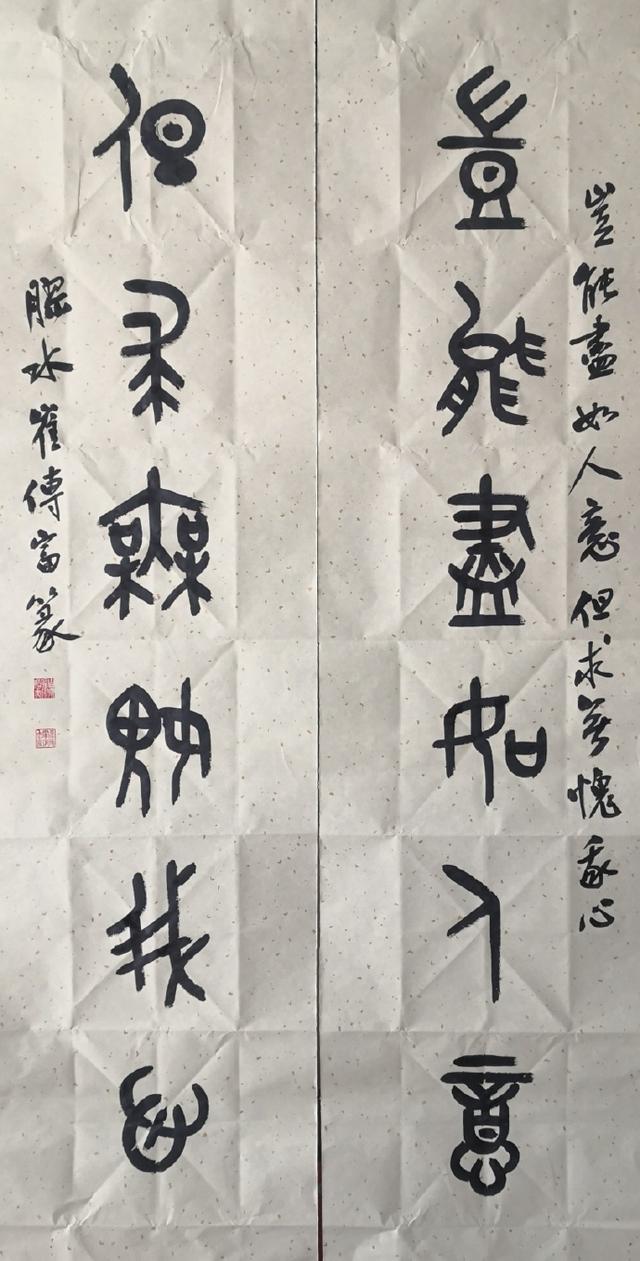 豈能盡如人意但求無愧我心
豈能盡如人意
但求無愧我心
腄水崔傳富篆